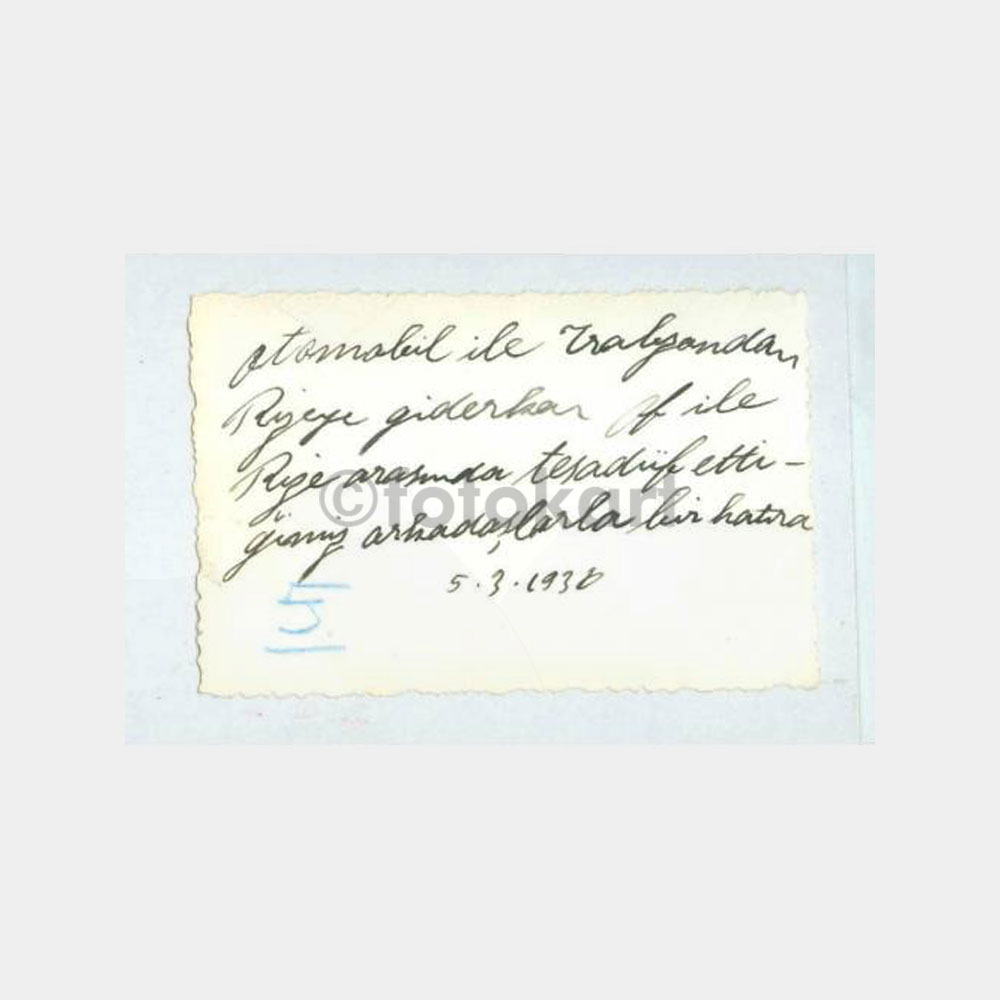 otomobil ile Trabzondan
Rizeye giderken Of ile
Rize arasında tesadüf etti-
ğimiz arkadaşlarla bir hatıra
5.3.1930
5
©fotokart